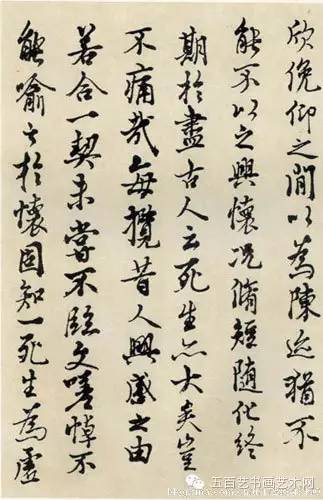 欣俛仰之間以為陳迹猶不
能不以之興懷況脩短隨化終
期於盡古人云死生亦大矣豈
不痛哉每攬昔人興感之由
若合一契未嘗不臨文嗟悼不
能喻之於懷固知一死生為虛
五百艺书画艺术网